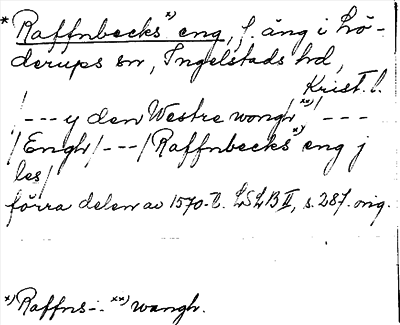 * Raffnbecks*) eng, f. äng i Lö-
derups sn, Ingelstads hd,
Krist. l.
/ - - - y den Westre wongh**)/ - - -
/Engh/ - - - /Raffnbecks*) eng j
les/
förra delen av 1570-t. LSLB II, s. 287. orig.
*) Raffns-. **) wangh.